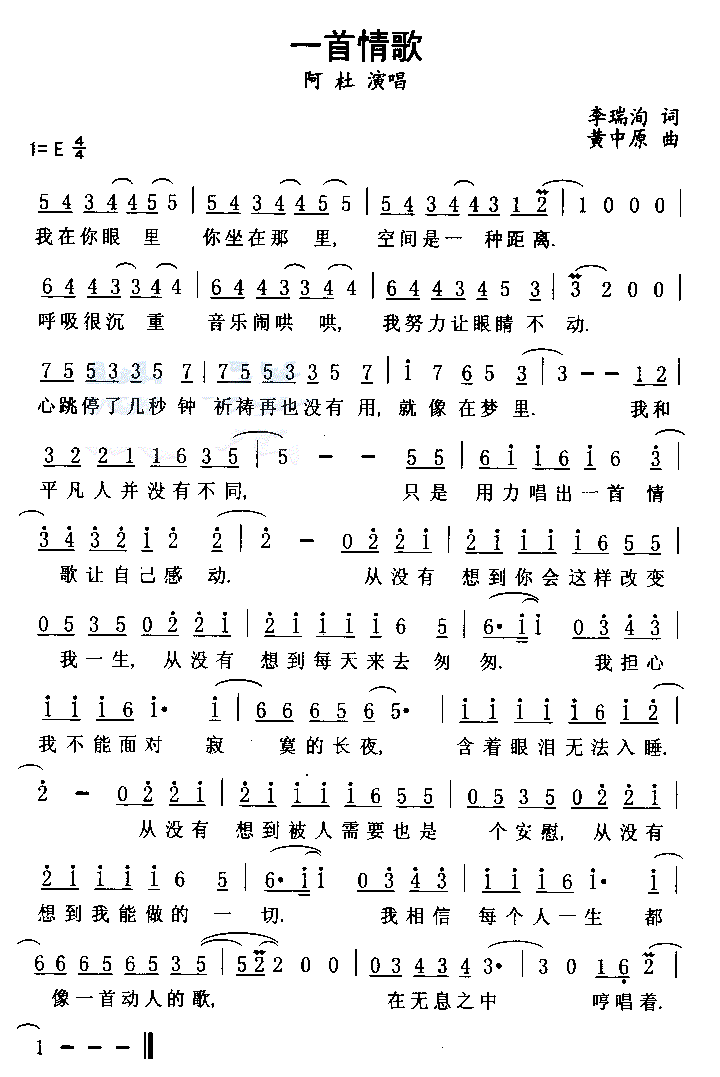 一首情歌
阿 杜 演唱
李瑞洵 词
1= E 4/4
黄中原 曲
5 4 3 4 4 5 5 | 5 4 3 4 4 5 5 | 5 4 3 4 4 3 1 2 | 1 0 0 0 |
我在你眼 里 你坐在那 里, 空间是一 种距离.
6 4 4 3 3 4 4 | 6 4 4 3 3 3 4 4 | 6 4 4 3 4 5 3 | 3 2 0 0 |
呼吸很沉 重 音乐闹哄 哄, 我努力让眼睛 不 动.
7 5 5 3 3 5 7 | 7 5 5 3 3 5 7 | i 7 6 5 3 | 3 - - 1 2 |
心跳停了几秒 钟 祈祷再也没有 用, 就 像 在 梦 里. 我和
3 2 2 1 1 6 3 5 | 5 - - 5 5 | 6 i i 6 i 6 3 |
平凡人并没有不同, 只是 用力唱出一首 情
3 4 3 2 i 2 2 | 2 - 0 2 2 i | 2 i i i i 6 5 5 |
歌让自己感 动. 从没有 想到你会这样改变
0 5 3 5 0 2 2 i | 2 i i i i 6 5 | 6· i i 0 3 4 3 |
我一生, 从没有 想到每天来去 匆 匆. 我担心
i i i 6 i· i | 6 6 6 5 6 5· | i i i i i 6 i 2 |
我不能面对 寂 寞的长夜, 含着眼泪无法入睡.
2 - 0 2 2 i | 2 i i i i 6 5 5 | 0 5 3 5 0 2 2 i |
从没有 想到被人需要也是 个安慰, 从没有
2 i i i i 6 5 | 6· i i 0 3 4 3 | i i i 6 i· i |
想到我能做的 一 切. 我相信 每个人一生 都
6 6 6 5 6 5 3 5 | 5 2 2 0 0 | 0 3 4 3 4 3· | 3 0 1 6 2 |
像一首动人的歌, 在无息之中 哼唱着.
1 - - - ‖